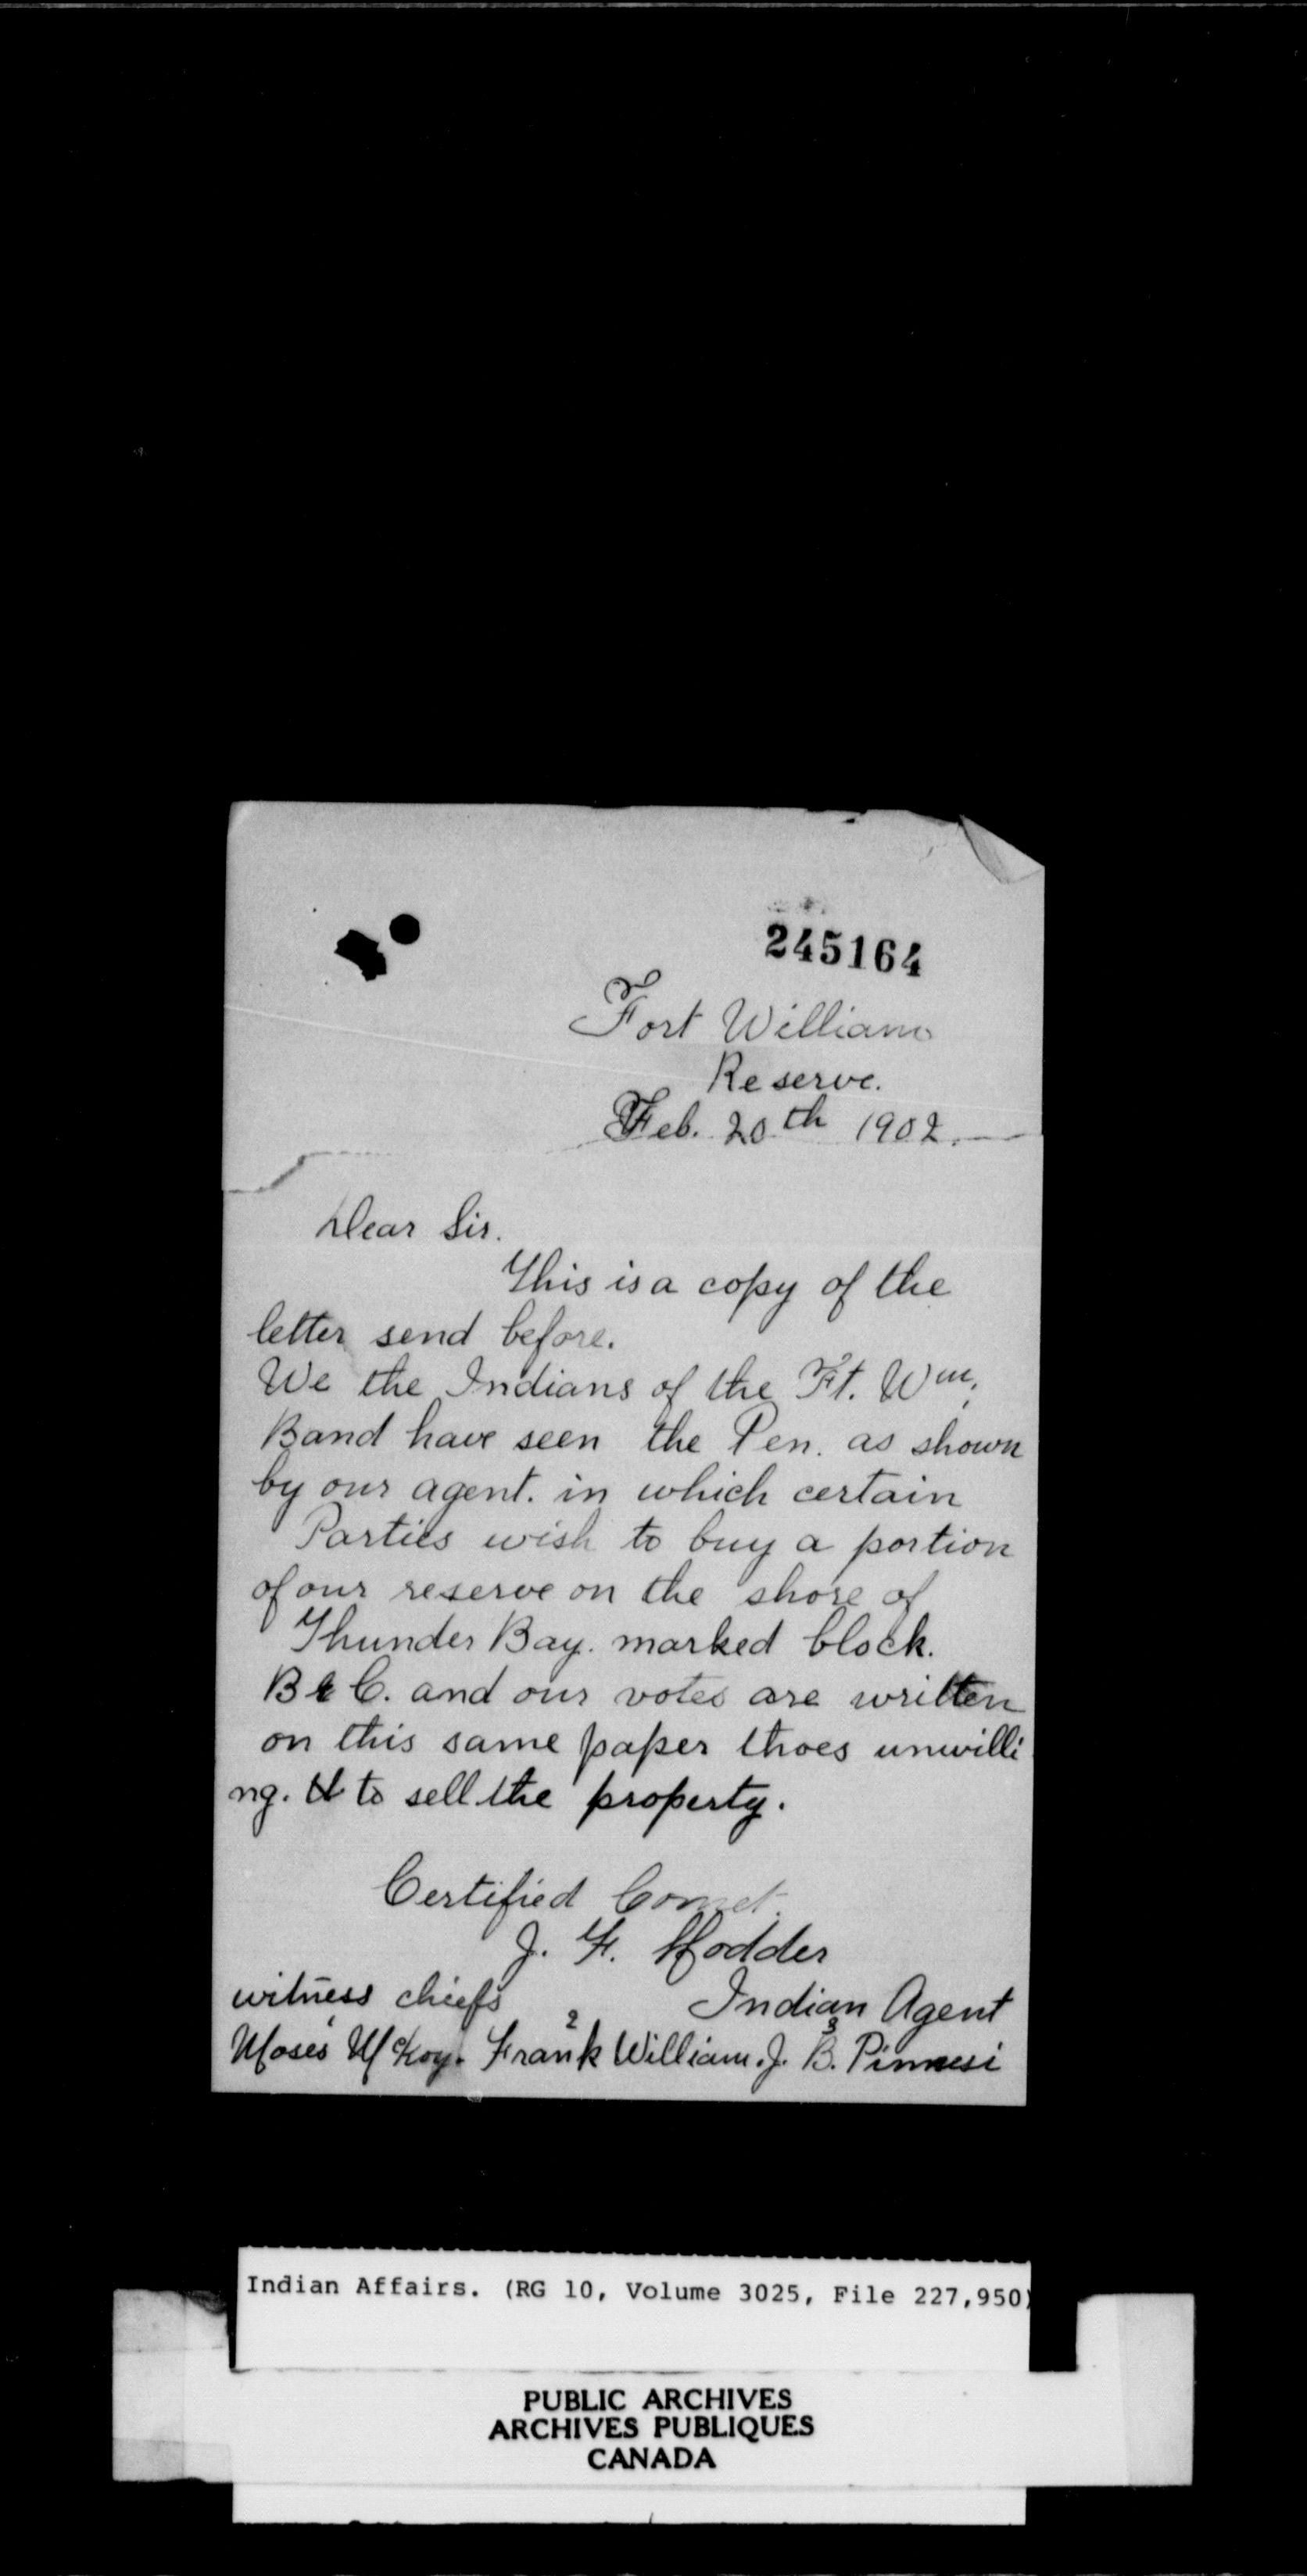 245164
Fort William
Reserve.
Feb. 20th 1902.
Dear Sir.
This is a copy of the
letter send before.
We the Indians of the Ft. Wm.
Band have seen the Pen. as shown
by our agent. in which certain
Parties wish to buy a portion
of our reserve on the shore of
Thunder Bay. marked block.
B & C. and our votes are written
on this same paper thoes unwilli
ng. to sell the property.
Certified Correct.
J. F. Hodder
witness chiefs
Indian Agent
2 3
Moses McKoy. Frank William. J. B. Pinnesi
Indian Affairs. (RG 10, Volume 3025, File 227,950)
PUBLIC ARCHIVES
ARCHIVES PUBLIQUES
CANADA